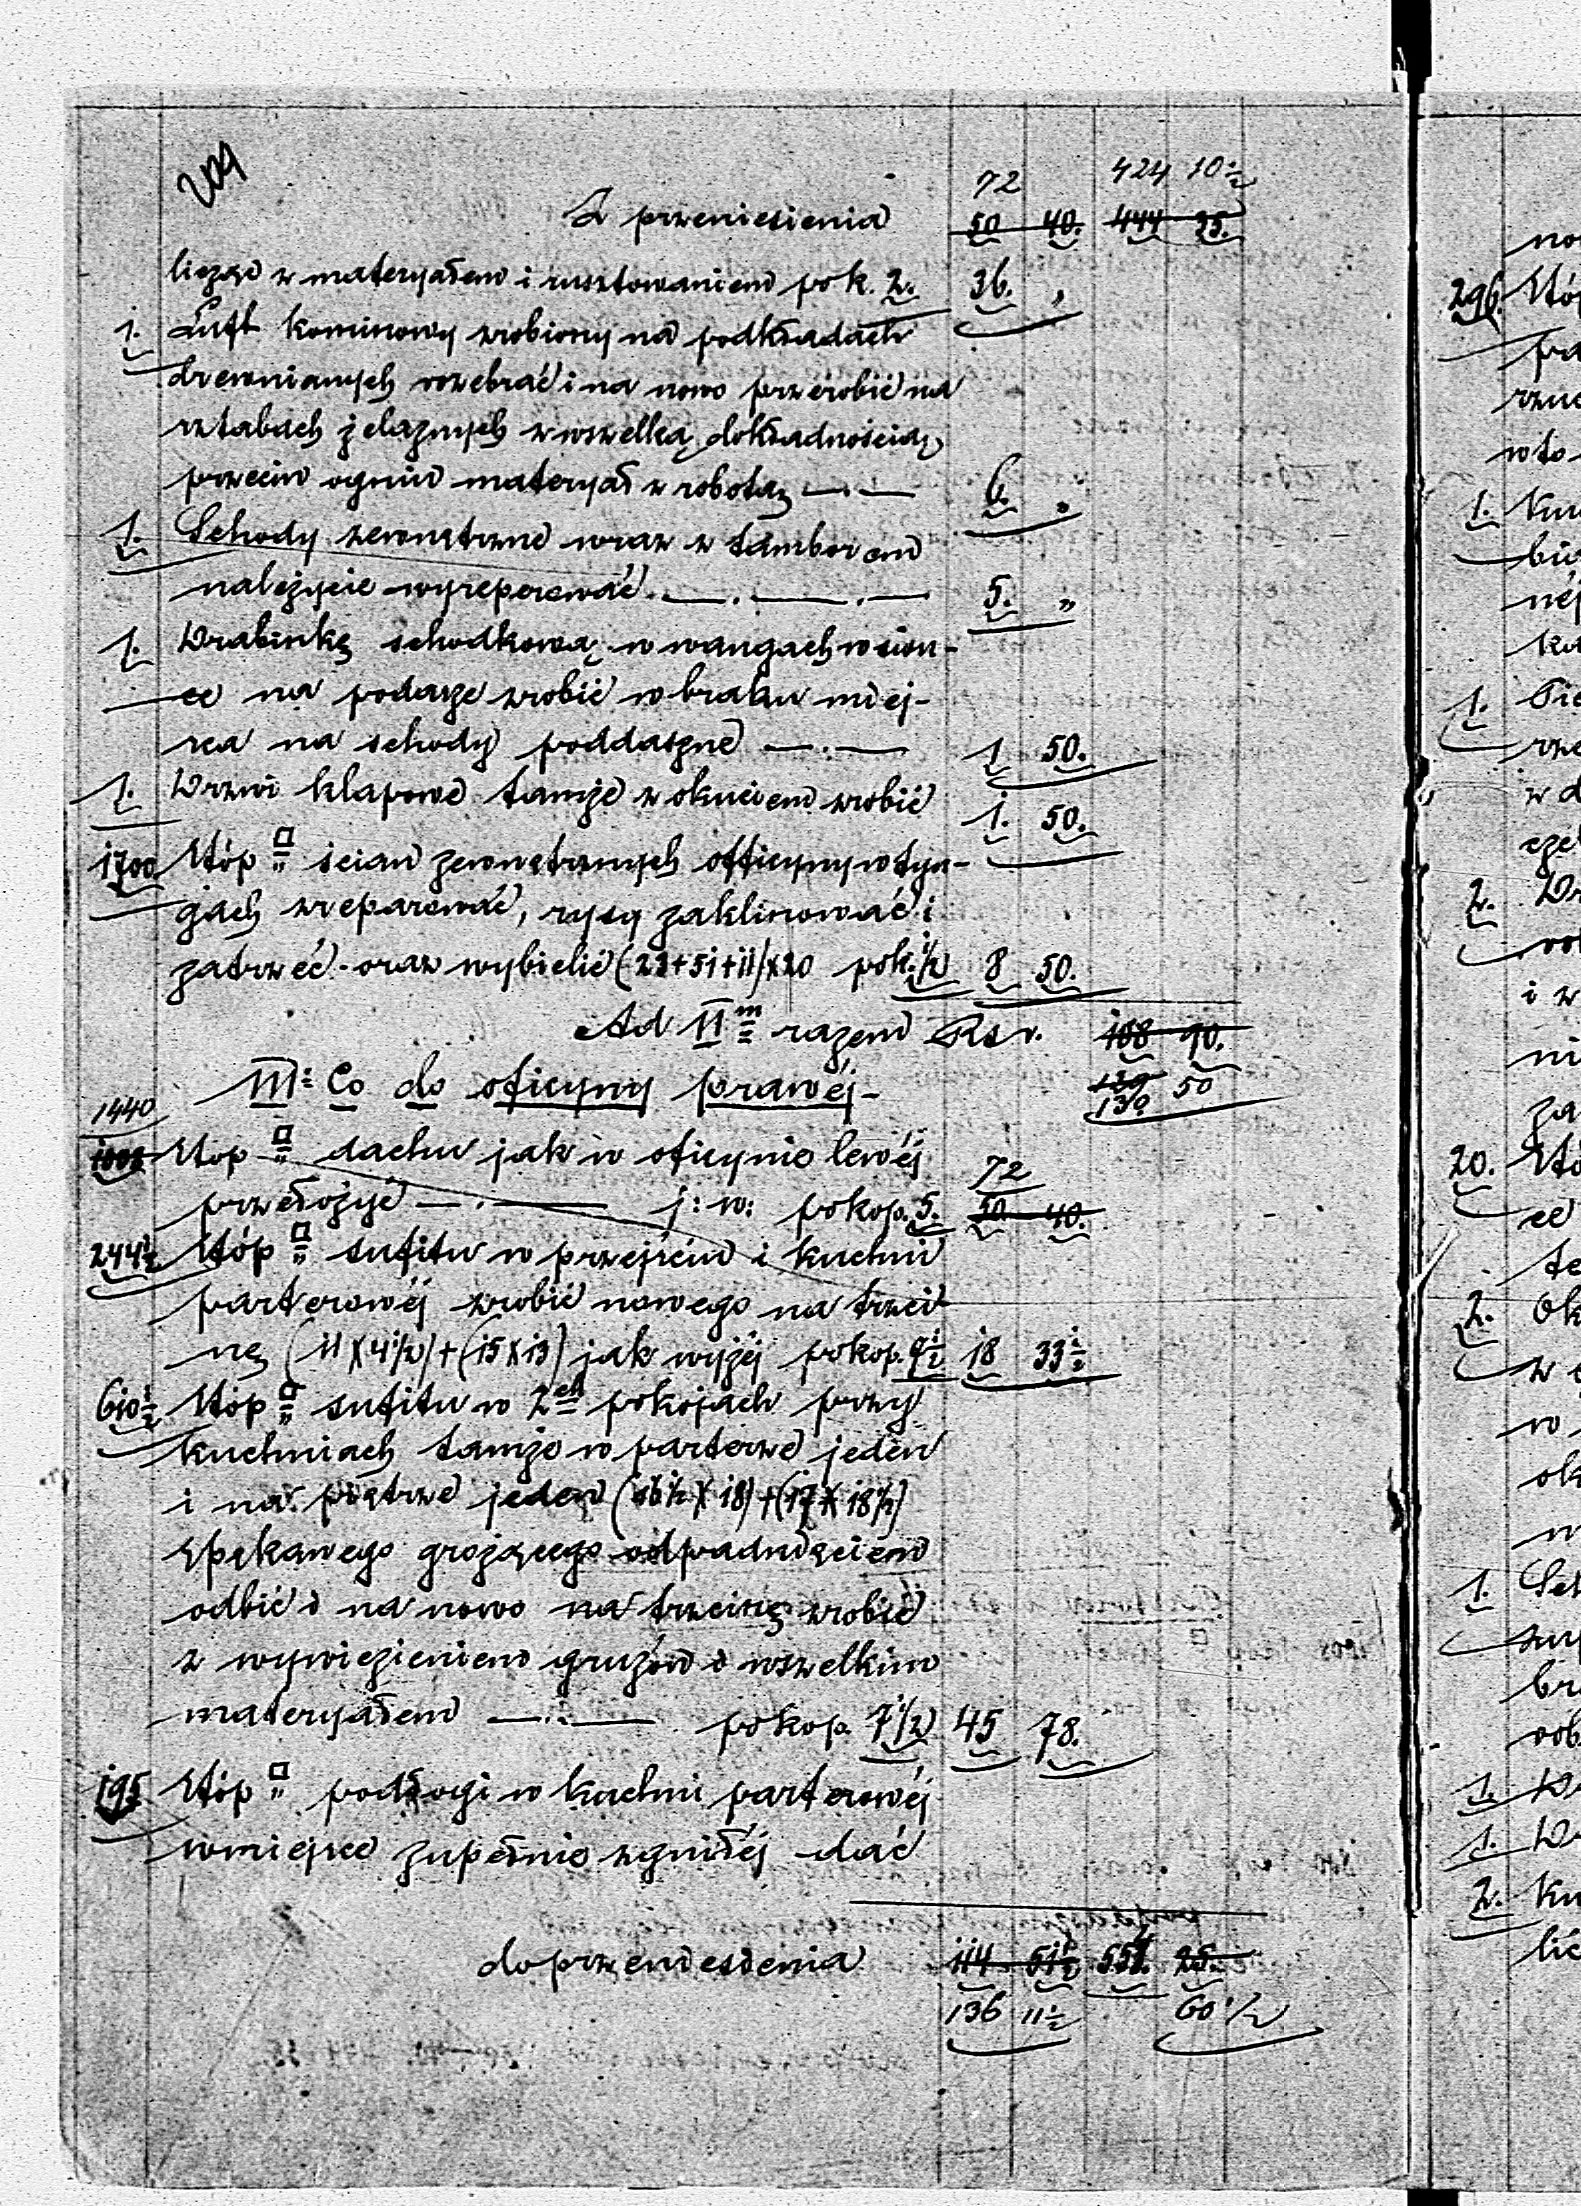 209
72 424 10½
Z przeniesienia 50 40. 444 25.
licząc z materyałem i rusztowaniem po k. 2. 36. „
1. Luft kominowy zrobiony na podkładach
drewnianych rozebrać i na nowo przerobić na
sztabach żelaznych z wszelką dokładnością
przeciw ogniu materyał z robotą —.— 6. „
1. Schody zewnętrzne wraz z tamborem
należycie wyreperować. —.—.— 5. „
1. Drabinkę schodkową w wangach w sion-
ce na podasze zrobić w braku miej-
sca na schody poddaszne —.— 1 50.
1. Drzwi klapowe tamże z okuciem zrobić 1. 50.
1700 Stóp □ ścian zewnętrznych officyny w tyn-
gach zreparować, rysy zaklinować i
zatrzeć oraz wybielić (23+51+11)×20 po k. ½ 8 50.
Ad II m razem Rsr. 188 90.
III: Co do oficyny prawéj - 139 50
130
1440
1008 Stóp □ dachu jak w oficynie lewéj
72
przełożyć —.— j: w: po kop. 5. 50 40.
244½ Stóp □ sufitu w przejściu i kuchni
parterowéj zrobić nowego na trzci-
nę (11×4½)+(15×13) jak wyżéj po kop. 7½ 18 33½
610½ Stóp □ sufitu w 2ch pokojach przy
kuchniach tamże w parterze jeden
i na piętrze jeden (16½×18)+(17×18½)
spękanego grożącego odpadnięciem
odbić i na nowo na trzcinę zrobić
z wywiezieniem gruzów i wszelkim
materyałem —.— po kop. 7½ 45 78.
195 Stóp □ podłogi w kuchni parterowéj
w miejsce zupełnie zgniłéj dać
do przeniesienia 114 51½ 55 25
136 11½ 60½
296. Stóp
1.
1.
2.
20.
2.
1.
1.
1.
2.